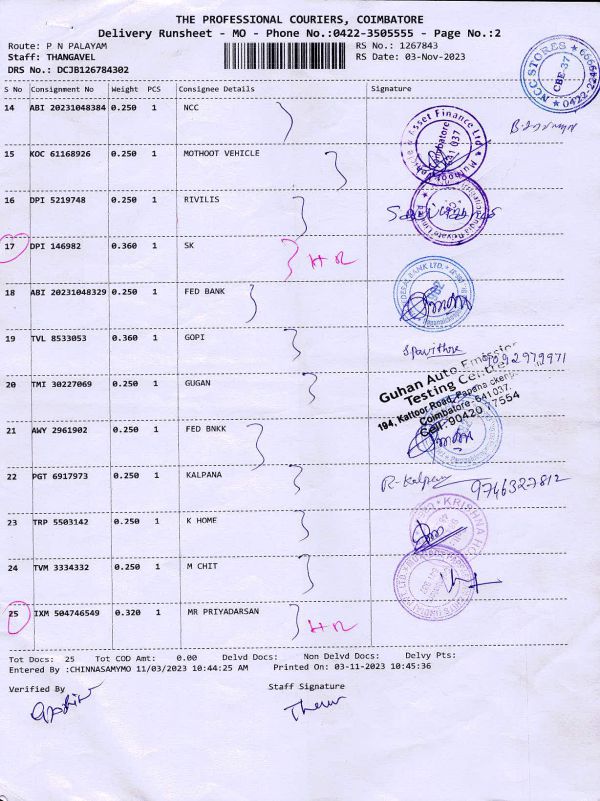 THE PROFESSIONAL COURIERS, COIMBATORE
Delivery Runsheet - MO - Phone No.:0422-3505555 - Page No.:2
Route: P N PALAYAM RS No.: 1267843
Staff: THANGAVEL RS Date: 03-Nov-2023
DRS No.: DCJB126784302
NCC STORES
CBE-37
S No Consignment No Weight PCS Consignee Details Signature
14 ABI 20231048384 0.250 1 NCC
15 KOC 61168926 0.250 1 MOTHOOT VEHICLE
Asset Finance Ltd
16 DPI 5219748 0.250 1 RIVILIS
17 DPI 146982 0.360 1 SK
18 ABI 20231048329 0.250 1 FED BANK
BANK LTD.
19 TVL 8533053 0.360 1 GOPI
20 TMI 30227069 0.250 1 GUGAN
Guhan Auto
Testing
194, Kattoor Road,
Coimbatore - 641 037.
Cell: 90420 17554
21 AWY 2961902 0.250 1 FED BNKK
22 PGT 6917973 1 KALPANA
R-Kalpana 9746327812
23 TRP 5503142 0.250 1 K HOME
KRISHNA
24 TVM 3334332 0.250 1 M CHIT
25 IXM 504746549 0.320 1 MR PRIYADARSAN
Tot Docs: 25 Tot COD Amt: 0.00 Delvd Docs: Non Delvd Docs: Delvy Pts:
Entered By :CHINNASAMYMO 11/03/2023 10:44:25 AM Printed On: 03-11-2023 10:45:36
Verified By Staff Signature